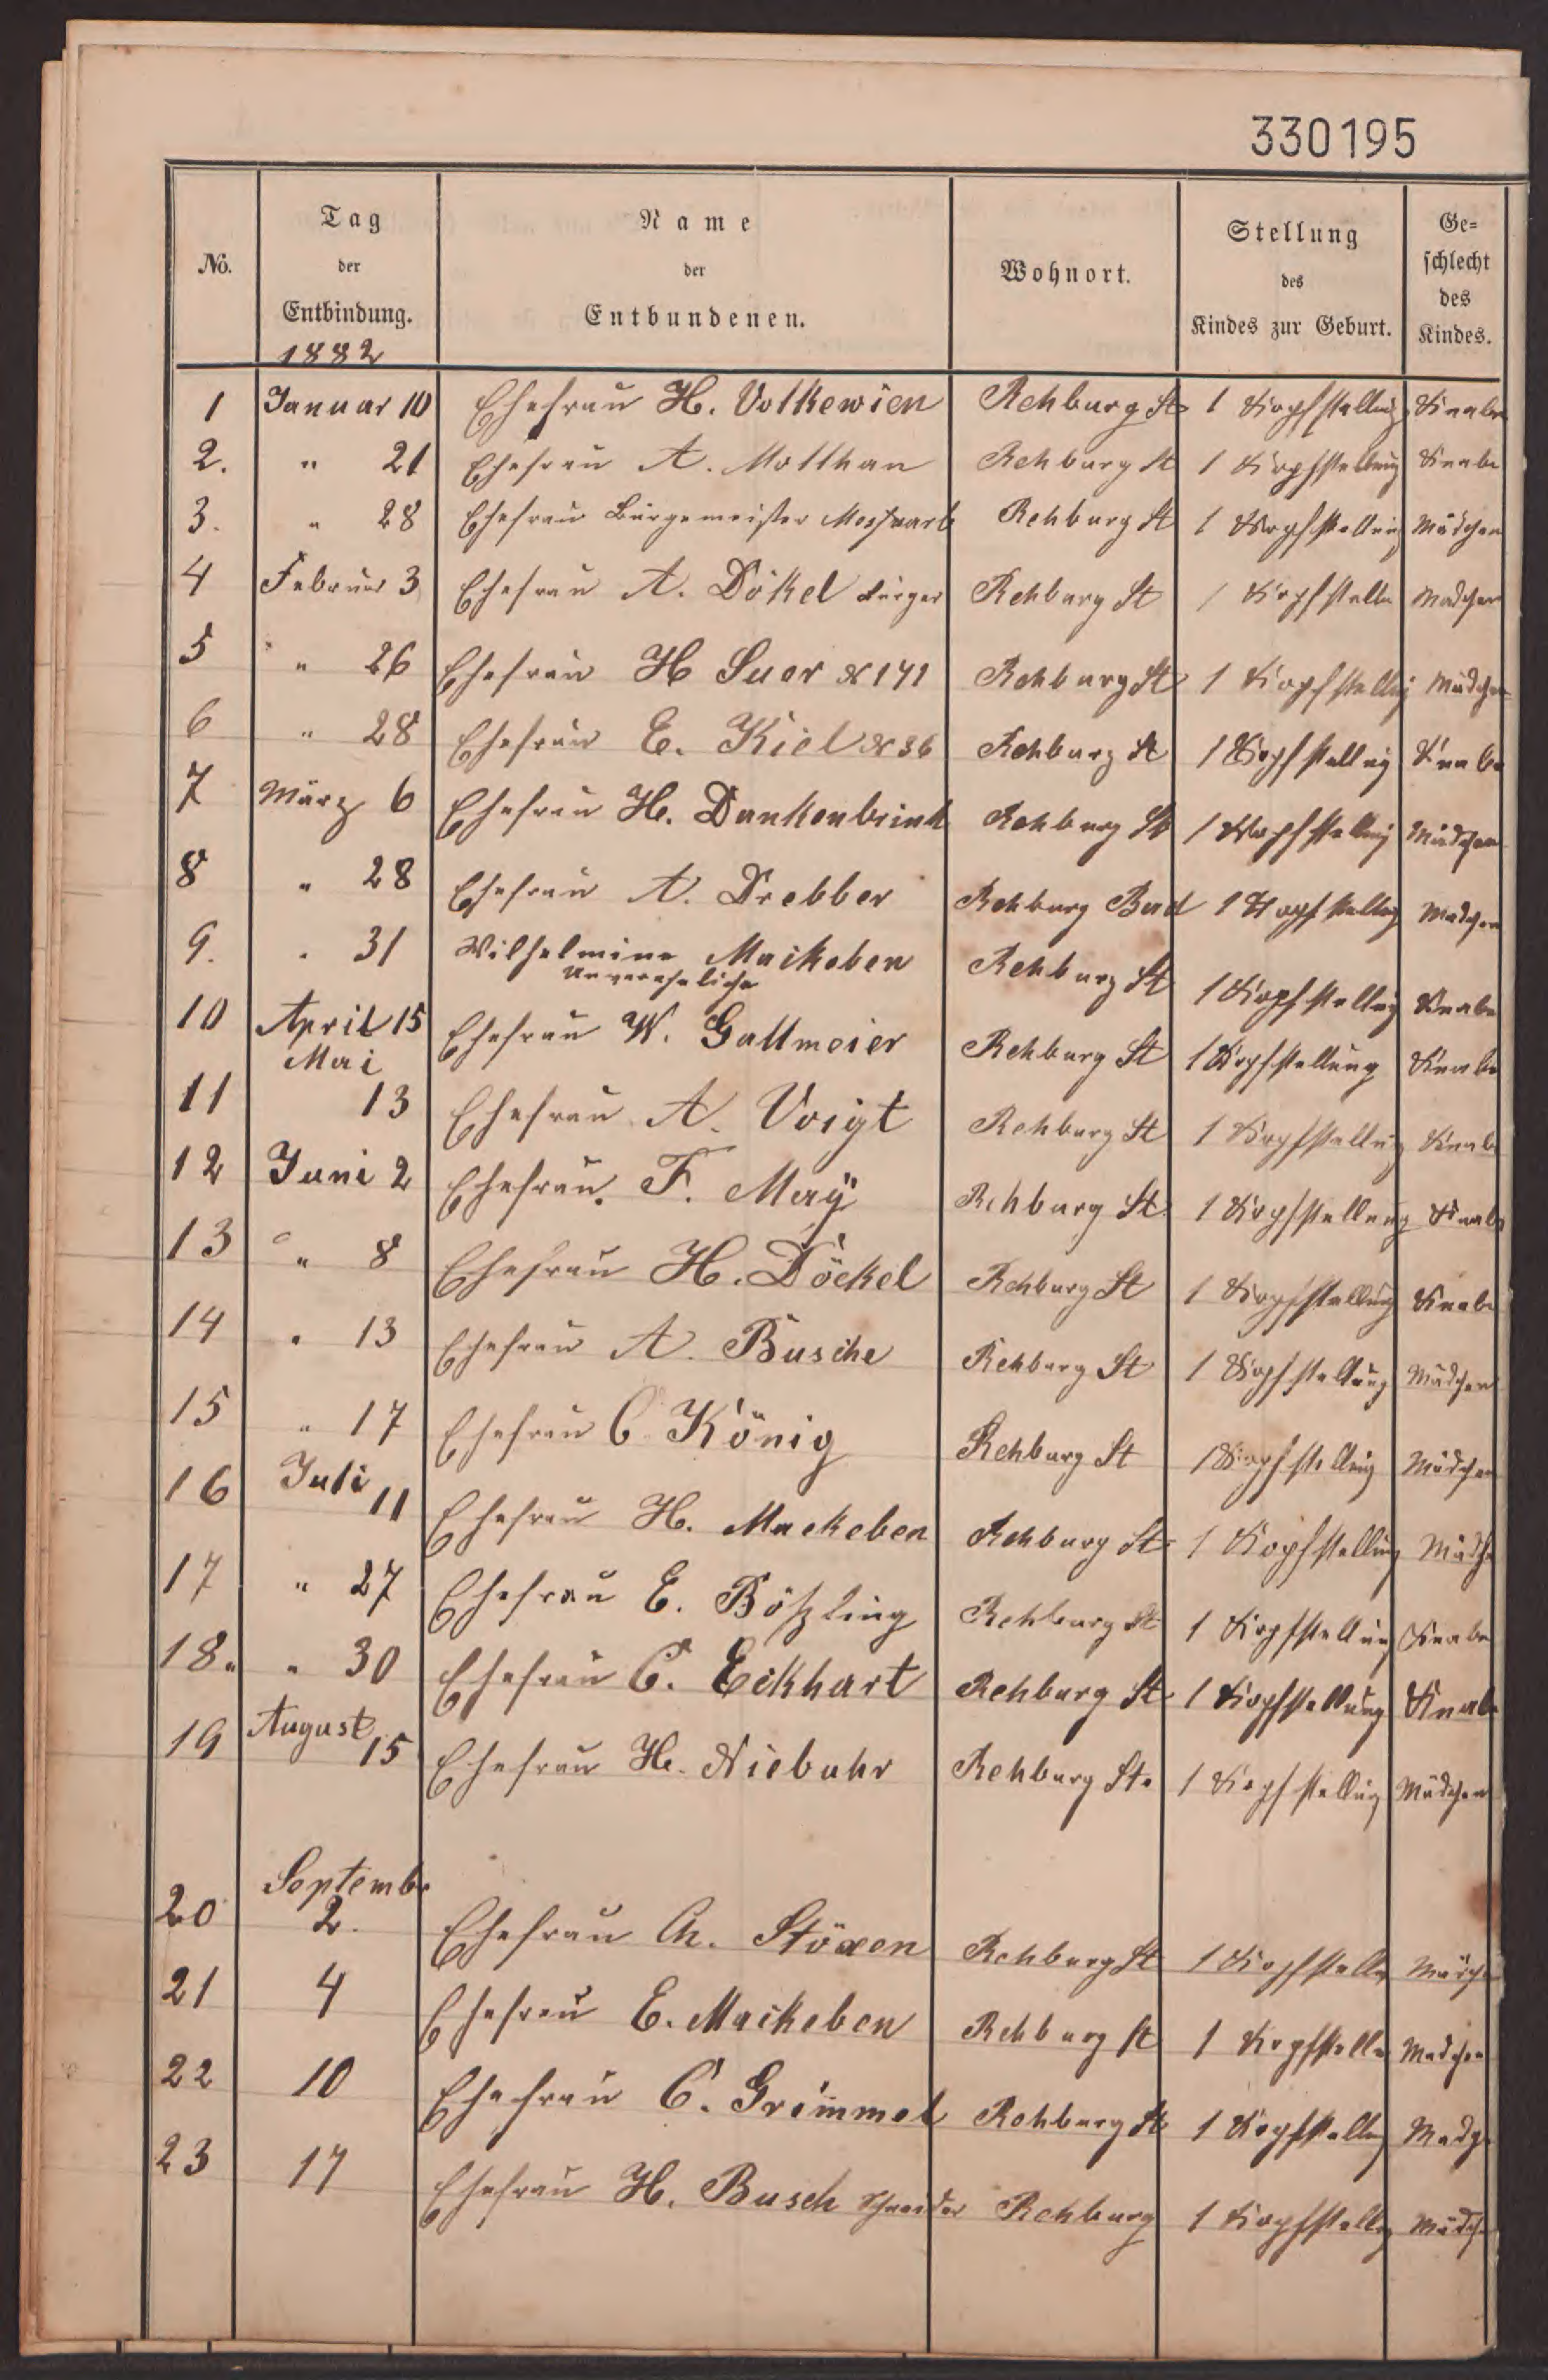 330195
No.
Tag
der
Entbindung.
1882
Name
der
Entbundenen.
Wohnort.
Stellung
des
Kindes zur Geburt.
Ge=
schlecht
des
Kindes.
1 Januar 10 Ehefrau H. Volkewien Rehburg St 1 Kopfstellung Knabe
2. " 21 Ehefrau A. Motthan Rehburg St 1 Kopfstellung Knabe
3. " 28 Ehefrau Bürgemeister Messwarb Rehburg St 1 Kopfstellung Mädchen
4 Februar 3 Ehefrau A. Dökel bürger Rehburg St 1 Kopfstelln Madchen
5 " 26 Ehefrau H Suer N 141 Rehburg St 1 Kopfstellug Mädchen
6 " 28 Ehefrau E. Kiel N 36 Rehburg St 1 Kopfstellug Knabe
7 März 6 Ehefrau H. Dankenbrink Rehburg St 1 Kopfstellug Mädchen
8 " 28 Ehefrau A. Drebber Rehburg Bad 1 Kopfstellug Madchen
9. " 31 Wilhelmine Maikeben Rehburg St 1 Kopfstellug Knabe
Unvereheliche
10 April 15 Ehefrau W. Gallmeier Rehburg St 1 Kopfstellung Knabe
Mai
11 13 Ehefrau A. Voigt Rehburg St 1 Kopfstellug Knabe
12 Juni 2 Ehefrau. F. Meÿ Rehburg St 1 Kopfstellung Knabe
13 " 8 Ehefrau H. Döckel Rehburg St 1 Kopfstellung Knabe
14 " 13 Ehefrau A. Busche Rehburg St 1 Kopfstellung Mädchen
15 " 17 Ehefrau C König Rehburg St 1 Kopfstellug Mädchen
16 Juli 11 Ehefrau H. Mackeben Rehburg St 1 Kopfstellung Mädche
17 " 27 Ehefrau E. Bößling Rehburg St 1 Kopfstellung Knabe
18. " 30 Ehefrau C. Eckhart Rehburg St 1 Kopfstellung Knabe
19 August 15 Ehefrau H. Niebuhr Rehburg St. 1 Kopfstellug Mädchen
Septembr
20 2. Ehefrau Ch. Stöxen Rehburg St 1 Kopfstelle Mädche
21 4 Ehefrau E. Maikeben Rehburg St 1 Kopfstelle Madchen
22 10 Ehefrau C. Grimmel Rehburg St 1 Kopfstellug Madge
23 17 Ehefrau H. Busch Schneider Rehburg 1 Kopfstellug Mädche